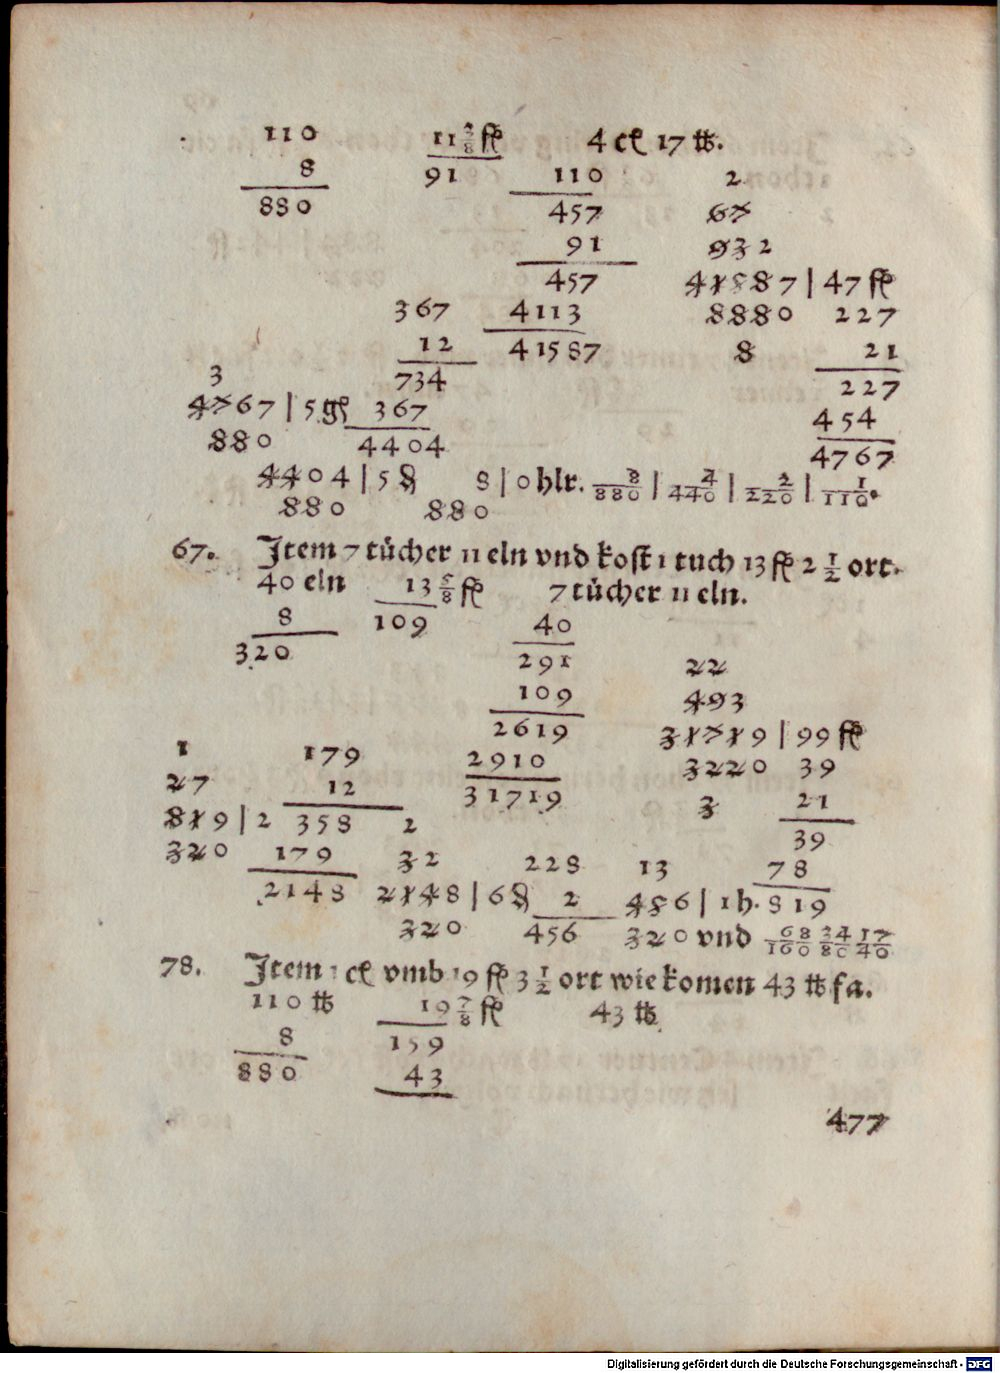 110 11 3/8 fl 4 ct 17 ℔.
8 91 110 2
880 457 67
91 932
457 41887 | 47 fl
367 4113 8880 227
12 41587 8 21
3 734 227
4767 | 5 gl 367 454
880 4404 4767
4404 | 5 ₰ 8 | 0 hlr. 8/880 | 4/440 | 2/220 | 1/110.
880 880
67. Item 7 tücher 11 eln vnd kost 1 tuch 13 fl 2 1/2 ort.
40 eln 13 5/8 fl 7 tücher 11 eln.
8 109 40
320 291 22
109 493
2619 31719 | 99 fl
1 179 2910 3220 39
27 12 31719 3 21
819 | 2 358 2 39
320 179 32 228 13 78
2148 2148 | 6 ₰ 2 486 | 1 h. 819
320 456 320 vnd 68/160 34/80 17/40
78. Item 1 ct vmb 19 fl 3 1/2 ort wie komen 43 ℔ fa.
110 ℔ 19 7/8 fl 43 ℔
8 159
880 43
477
Digitalisierung gefördert durch die Deutsche Forschungsgemeinschaft - DFG